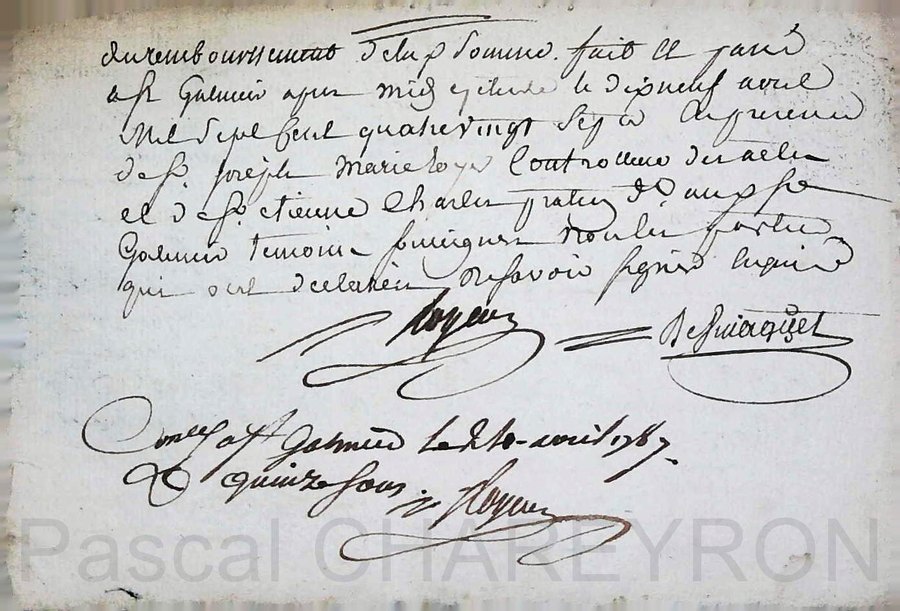 du remboursement de la p somme. fait et passé
a st Galmier apres midy le dixneuf avril
Mil Sept Cent quatre vingt Sept en la presence
de sr. joseph Marie Royer Controlleur des actes
et de sr. etienne Charles au
Galmier temoins soussignes non les parties
qui ont declarées ne savoir signer enquis
Royer
Con a st Galmier le avril 1787.
quinze sous. Royer
Pascal CHAREYRON